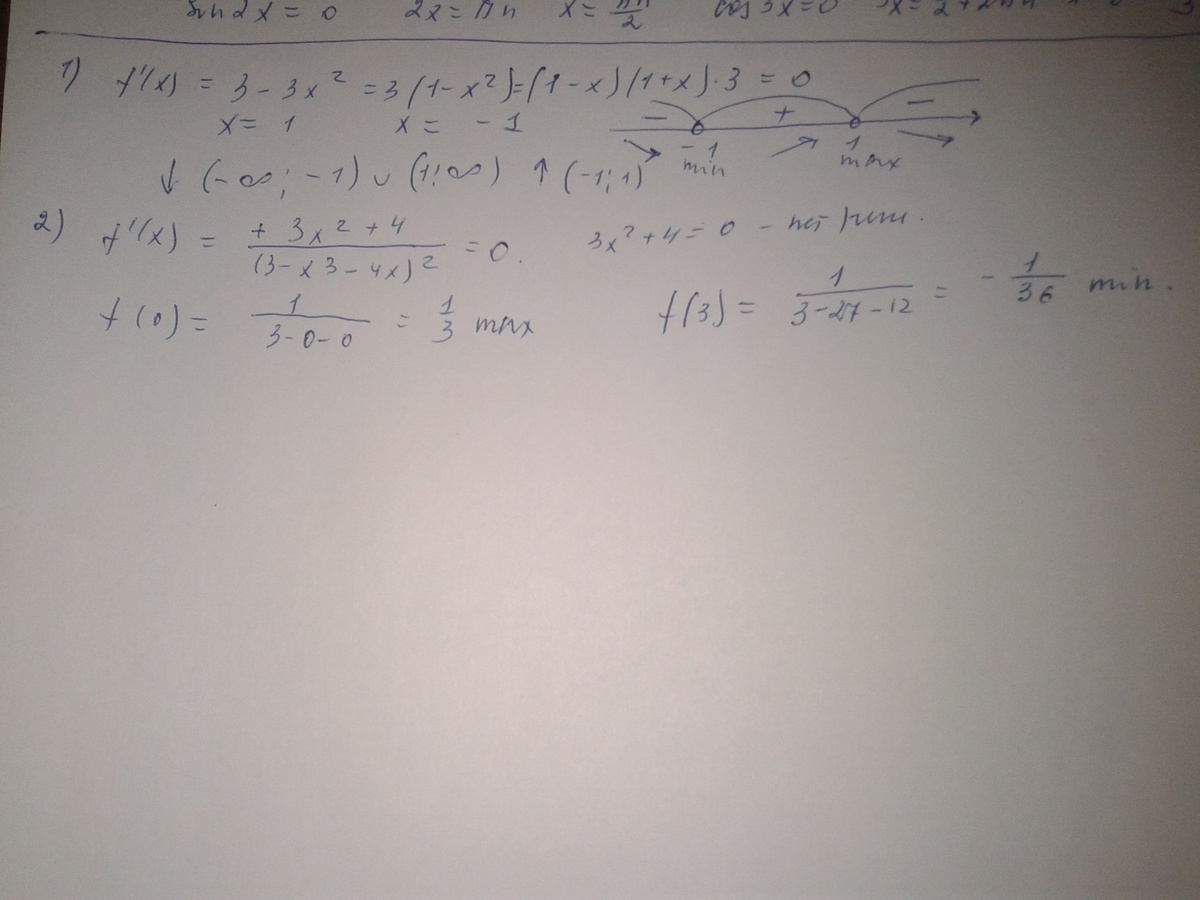 sin 2x = 0 2x = πn x = πn/2 cos 3x = 0
1) f'(x) = 3 - 3x² = 3(1 - x²) = (1 - x)(1 + x)·3 = 0
x = 1 x = -1
- + -
-1 1
min max
↓ (-∞; -1) ∪ (1; ∞) ↑ (-1; 1)
2) f'(x) = (+ 3x² + 4)/(3 - x3 - 4x)² = 0. 3x² + 4 = 0 - нет реш.
f(0) = 1/(3-0-0) = 1/3 max f(3) = 1/(3-27-12) = -1/36 min.